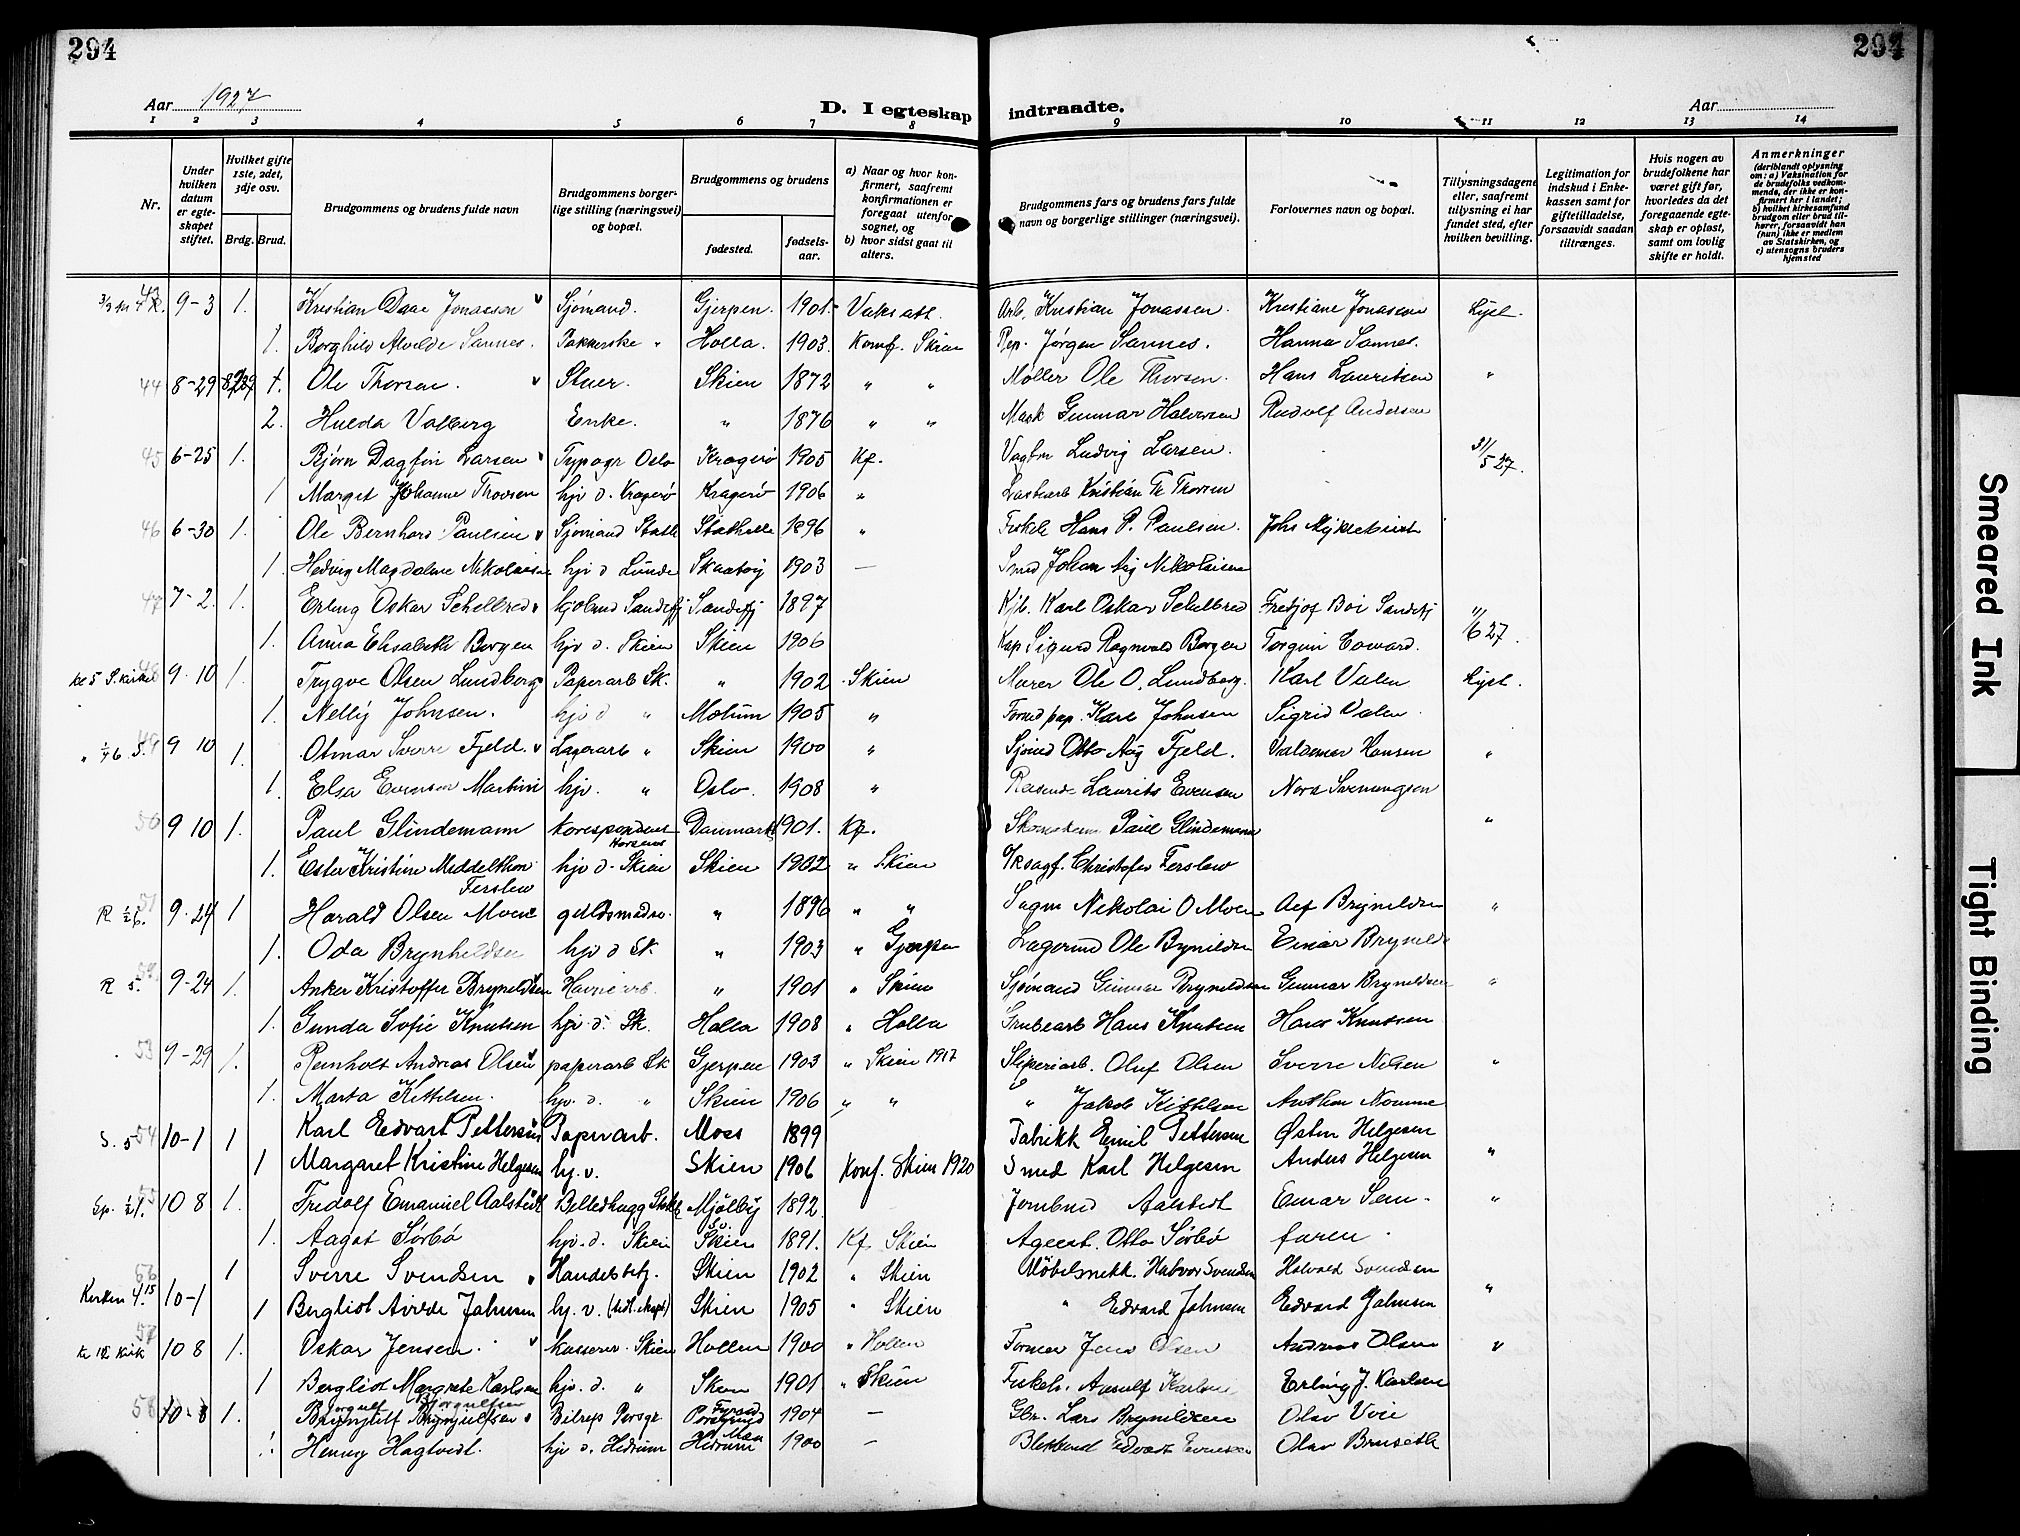 294
294
Aar 1927
D. I egteskap indtraadte.
Aar
1 2 3 4 5 6 7 8 9 10 11 12 13 14
Nr.
Under hvilken datum er egteskapet stiftet.
Hvilket gifte 1ste, 2det, 3dje osv.
Brdg. Brud.
Brudgommens og brudens fulde navn
Brudgommens borgerlige stilling (næringsvei) og bopæl.
Brudgommens og brudens
fødested.
fødselsaar.
a) Naar og hvor konfirmert, saafremt konfirmationen er foregaaet utenfor sognet, og
b) hvor sidst gaat til alters.
Brudgommens fars og brudens fars fulde navn og borgerlige stillinger (næringsvei).
Forlovernes navn og bopæl.
Tillysningsdagene eller, saafremt tillysning ei har fundet sted, efter hvilken bevilling.
Legitimation for indskud i Enkekassen samt for giftetilladelse, forsaavidt saadan tiltrænges.
Hvis nogen av brudefolkene har været gift før, hvorledes da det foregaaende egteskap er opløst, samt om lovlig skifte er holdt.
Anmerkninger
(deriblandt oplysning om: a) Vaksination for de brudefolks vedkommende, der ikke er konfirmert her i landet; b) hvilket kirkesamfund brudgom eller brud tilhører, forsaavidt han (hun) ikke er medlem av Statskirken, og c) utensogns bruders hjemsted
43 9-3 1. Kristian Daae Jonassen Sjømand. Gjerpen. 1901 Vaks att. Arb. Kristian Jonassen. Kristiane Jonassen Lyst.
1. Borghild Alvilde Sannes. Pakkerske " Holla. 1903. Konf. Skien Rep. Jørgen Sannes. Hanna Sannes.
44 8-29 1. Ole Thorsen. Stuer. Skien 1872 " " Møller Ole Thorsen. Hans Lauritsen "
2. Hulda Valberg Enke. " 1876 " " Mask Gunnar Halvorsen Rudolf Andersen
45 6-25 1. Bjørn Dagfin Larsen Typogr Oslo Kragerø 1905 Kf. Vagtm Ludvig Larsen. 31/5 27.
1 Margit Johanne Thorsen hjv d. Kragerø Kragerø 1906 " Lastearb Kristian Th Thorsen
46 6-30 1. Ole Bernhard Paulsen Sjømand Stath Stathelle 1896 " Fiskeh Hans P. Paulsen. Johs Myklebust
1. Hedvig Magdalene Nikolaisen hjv d Lunde Skaatøy 1903 — Smed Johan Aug Nikolaisen
47 7-2. 1. Erling Oskar Schelbred Kjøbmd Sandefj Sandefj 1897 Kjb. Karl Oskar Schelbred Fredjof Boi Sandefj 11/6 27.
1. Anna Elisabeth Borgen hjv d. Skien Skien 1906 Kap Sigurd Ragnvald Borgen Torgun Coward.
kl 5 S. kirke 48 9-10 1. Trygve Olsen Lundberg Paperarb Sk. " 1902 Skien Murer Ole O. Lundberg. Karl Valen Lyst.
1. Nelly Johnsen. hjv d " Melum 1905 " Formd pap. Karl Johnsen Sigrid Valen
49 9 10 1. Otmar Sverre Fjeld. Lagerarb " Skien 1900 " Sjømd Otto Aug Fjeld. Valdemar Hansen "
1. Elsa Evensen Martini hjv. " Oslo. 1908 " Laurits Evensen Nora Svenungsen
50 9 10 1. Paul Glindemann Korespondent Horsens Danmark 1901. Kf. Skomakerm Paul Glindemann "
1. Ester Kristine Middelthon Ferslew hjv d. Skien Skien 1902 " Skien O/Rsagf. Christofer Ferslew
51 9-24 1 Harald Olsen Moen guldsmedsv. " 1896 " " Sagm Nikolai O Moen Alf Bryneldsen "
1. Oda Brynhildsen hjv d Sk. " 1903 " Gjerpen Lagermd Ole Bynildsen Einar Brynilds
R 5. 52 9-24 1. Anker Kristoffer Bryneldsen Havnearb. " 1901 " Skien Sjømand Gunnar Bryneldsen Gunnar Bryneldsen "
1. Gunda Sofie Knutsen hjv. d. Sk. Holla 1908 " Holla Grubearb Hans Knutsen Hans Knutsen
53 9-29 1. Reinholt Andreas Olsen paperarb Sk Gjerpen 1903 " Skien 1917 Sliperiarb. Oluf Olsen Sverre Nilsen "
1. Marta Kittelsen. hjv. d. " Skien 1906 " " " Jakob Kittelsen Anthon Nomme
S. 5 54 10-1 1 Karl Edvart Pettersen Paperarb. Moss 1899 Fabrikk Emil Pettersen Østen Helgesen
1 Margaret Kristine Helgesen hj. v. Skien 1906 Konf. Skien 1920 Smed Karl Helgesen Anders Helgesen "
55 10 8 1. Fredolf Emanuel Aalstedt Billedhugg Mjølby Sv. 1892. Jernbmd Aalstedt Einar Sem. "
1. Aagot Sørbø hjv. d. Skien Skien 1891. Kf Skien Agent. Otto Sørbø faren.
Kirken 4.15 56 10-1 1 Sverre Svendsen Handelsbetj. Skien 1902 " Skien Møbelsnekk. Halvor Svendsen Halvald Svendsen "
1 Bergliot Alvilde Jahnsen hj. v. Skien 1905 " Skien " Edvard Jahnsen Edvard Jahnsen
57 10 8 1. Oskar Jensen. kasserer Skien Hollen 1900 " Hollen Former Jens Olsen Andreas Olsen "
1 Bergliot Margrete Karlsen hjv. d. " Skien 1901 " Skien Fiskeh. Karlsen Erling J. Karlsen
58 10-8 1. Brynjulf Brynjulfsen Bilrep Porsgr 1904 — Gbr. Lars Bryneldsen Olav Vie
1. Henny Hagtvedt. hjv d. Hedrum Hedrum 1900 — Edvard Evensen Olav Bruseth
Smeared Ink
Tight Binding